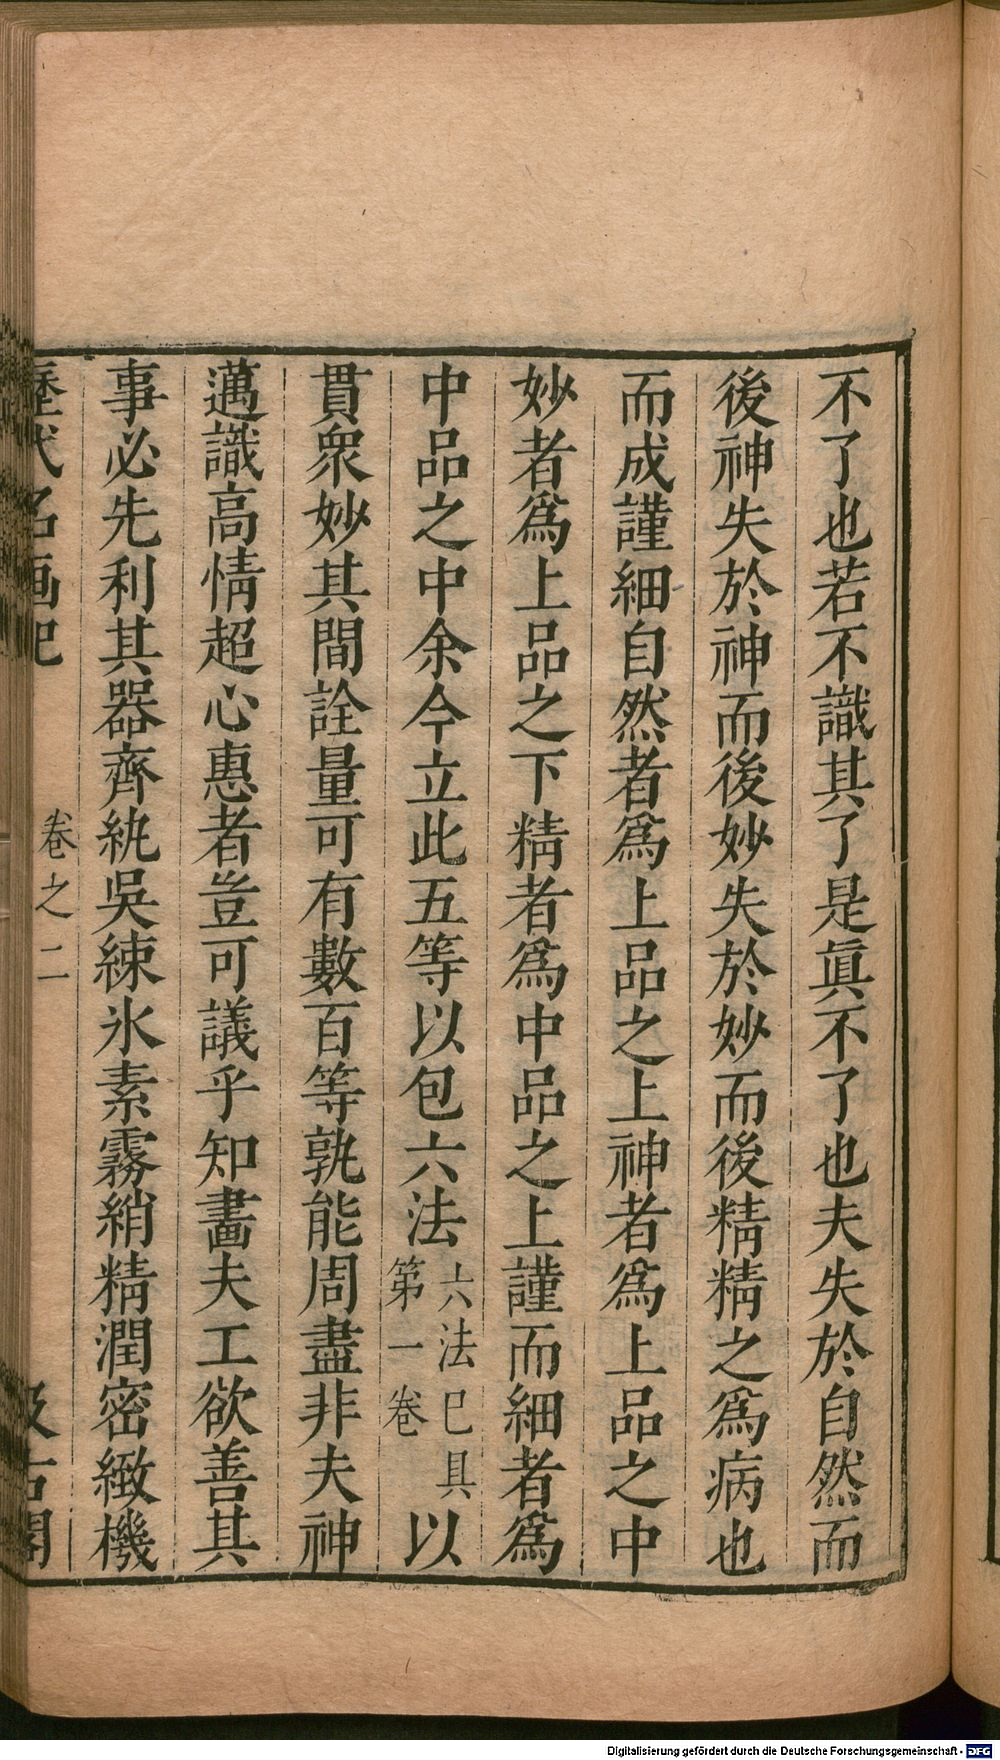 不了也若不識其了是眞不了也夫失於自然而
後神失於神而後妙失於妙而後精精之爲病也
而成謹細自然者爲上品之上神者爲上品之中
妙者爲上品之下精者爲中品之上謹而細者爲
中品之中余今立此五等以包六法六法已具第一卷以
貫衆妙其間詮量可有數百等孰能周盡非夫神
邁識高情超心惠者豈可議乎知畵夫工欲善其
事必先利其器齊紈吳練氷素霧綃精潤密緻機
歷代名画記
卷之二
汲古閣
Digitalisierung gefördert durch die Deutsche Forschungsgemeinschaft - DFG